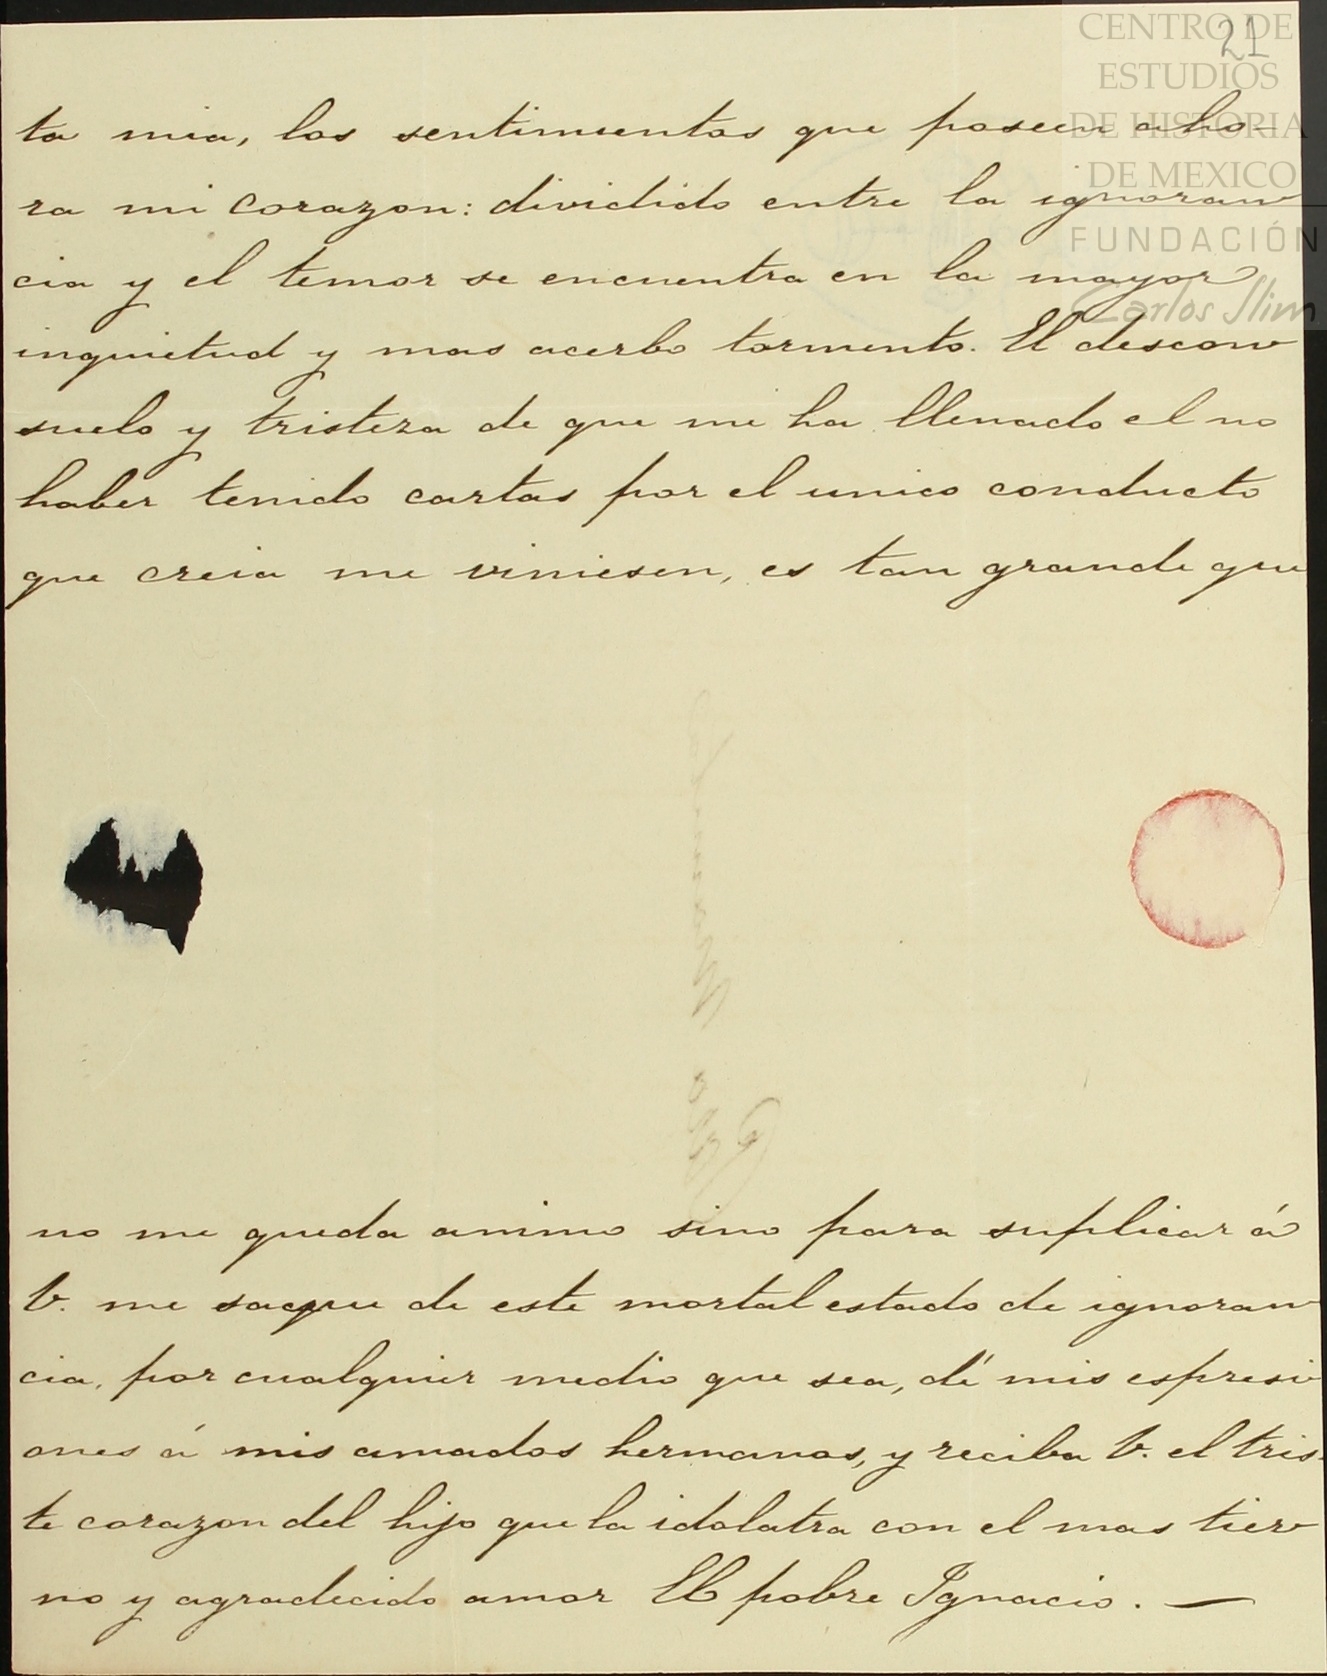 CENTRO DE
ESTUDIOS
DE HISTORIA
DE MEXICO
FUNDACIÓN
Carlos Slim
21
ta mia, los sentimientos que poseen aho-
ra mi corazon: dividido entre la ignoran
cia y el temor se encuentra en la mayor
inquietud y mas acerbo tormento. El descon
suelo y tristeza de que me ha llenado el no
haber tenido cartas por el unico conducto
que creia me viniesen, es tan grande que
no me queda animo sino para suplicar á
V. me saque de este mortal estado de ignoran
cia, por cualquier medio que sea, dé mis espresi
ones á mis amados hermanos, y reciba V. el tris-
te corazon del hijo que la idolatra con el mas tier
no y agradecido amor El pobre Ignacio. —